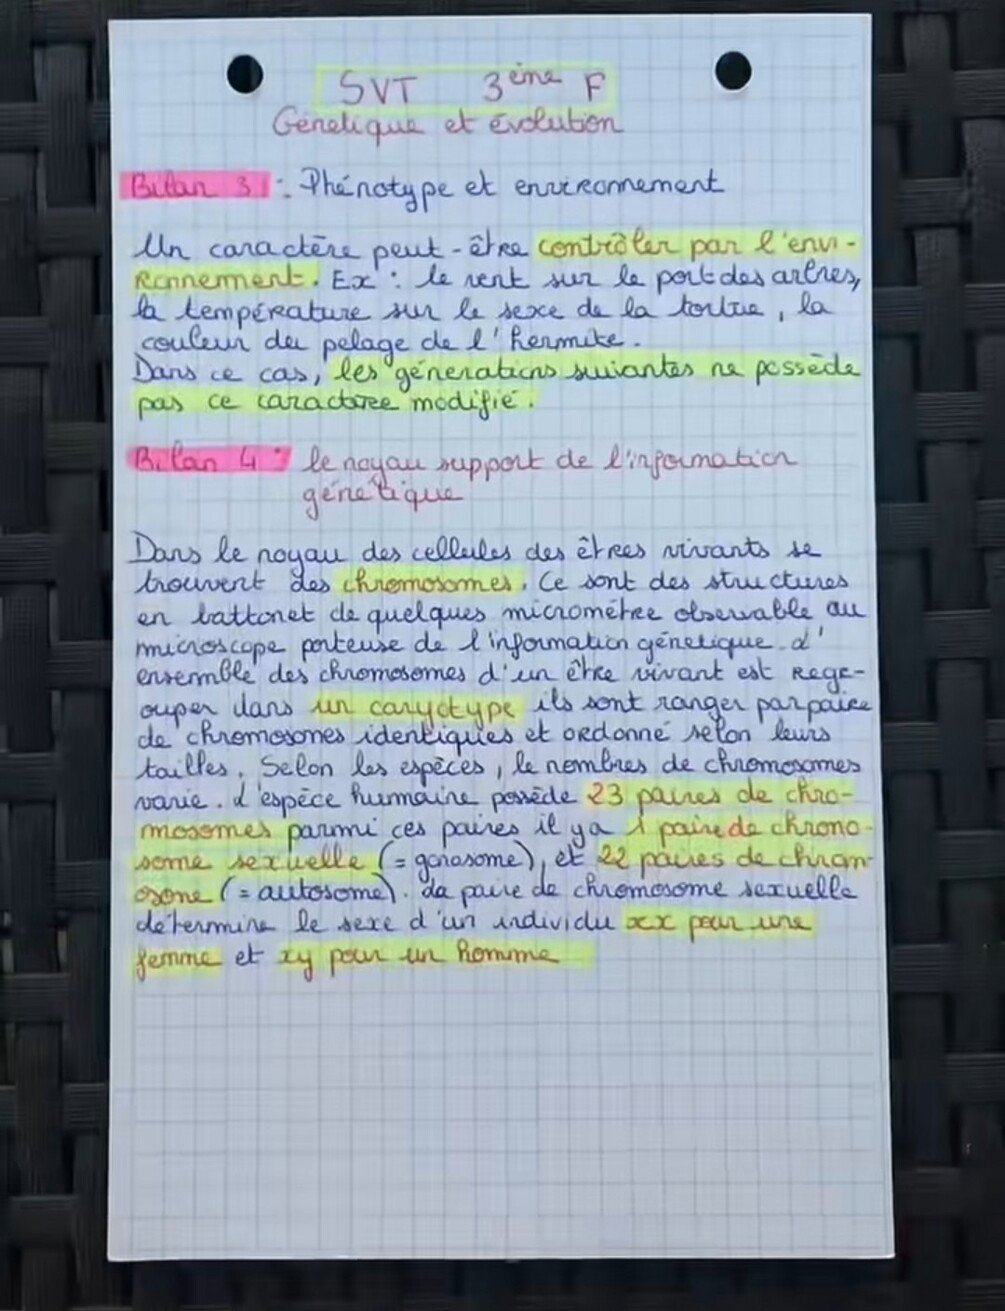 SVT 3ème F
Génétique et évolution
Bilan 3 : Phénotype et environnement
Un caractère peut-être contrôler par l'envi-
ronnement. Ex : le vent sur le port des arbres,
la température sur le sexe de la tortue, la
couleur du pelage de l'hermite.
Dans ce cas, les générations suivantes ne possède
pas ce caractère modifié.
Bilan 4 : le noyau support de l'information
génétique
Dans le noyau des cellules des êtres vivants se
trouvent des chromosomes. Ce sont des structures
en battonet de quelques micromètre observable au
microscope porteuse de l'information génétique. L'
ensemble des chromosomes d'un être vivant est regr-
ouper dans un caryotype ils sont ranger par paire
de chromosomes identiques et ordonné selon leurs
tailles. Selon les espèces, le nombres de chromosomes
varie. L'espèce humaine possède 23 paires de chro-
mosomes parmi ces paires il y a 1 paire de chromo-
some sexuelle (= gonosome), et 22 paires de chrom-
osome (= autosome). La paire de chromosome sexuelle
détermine le sexe d'un individu xx pour une
femme et xy pour un homme